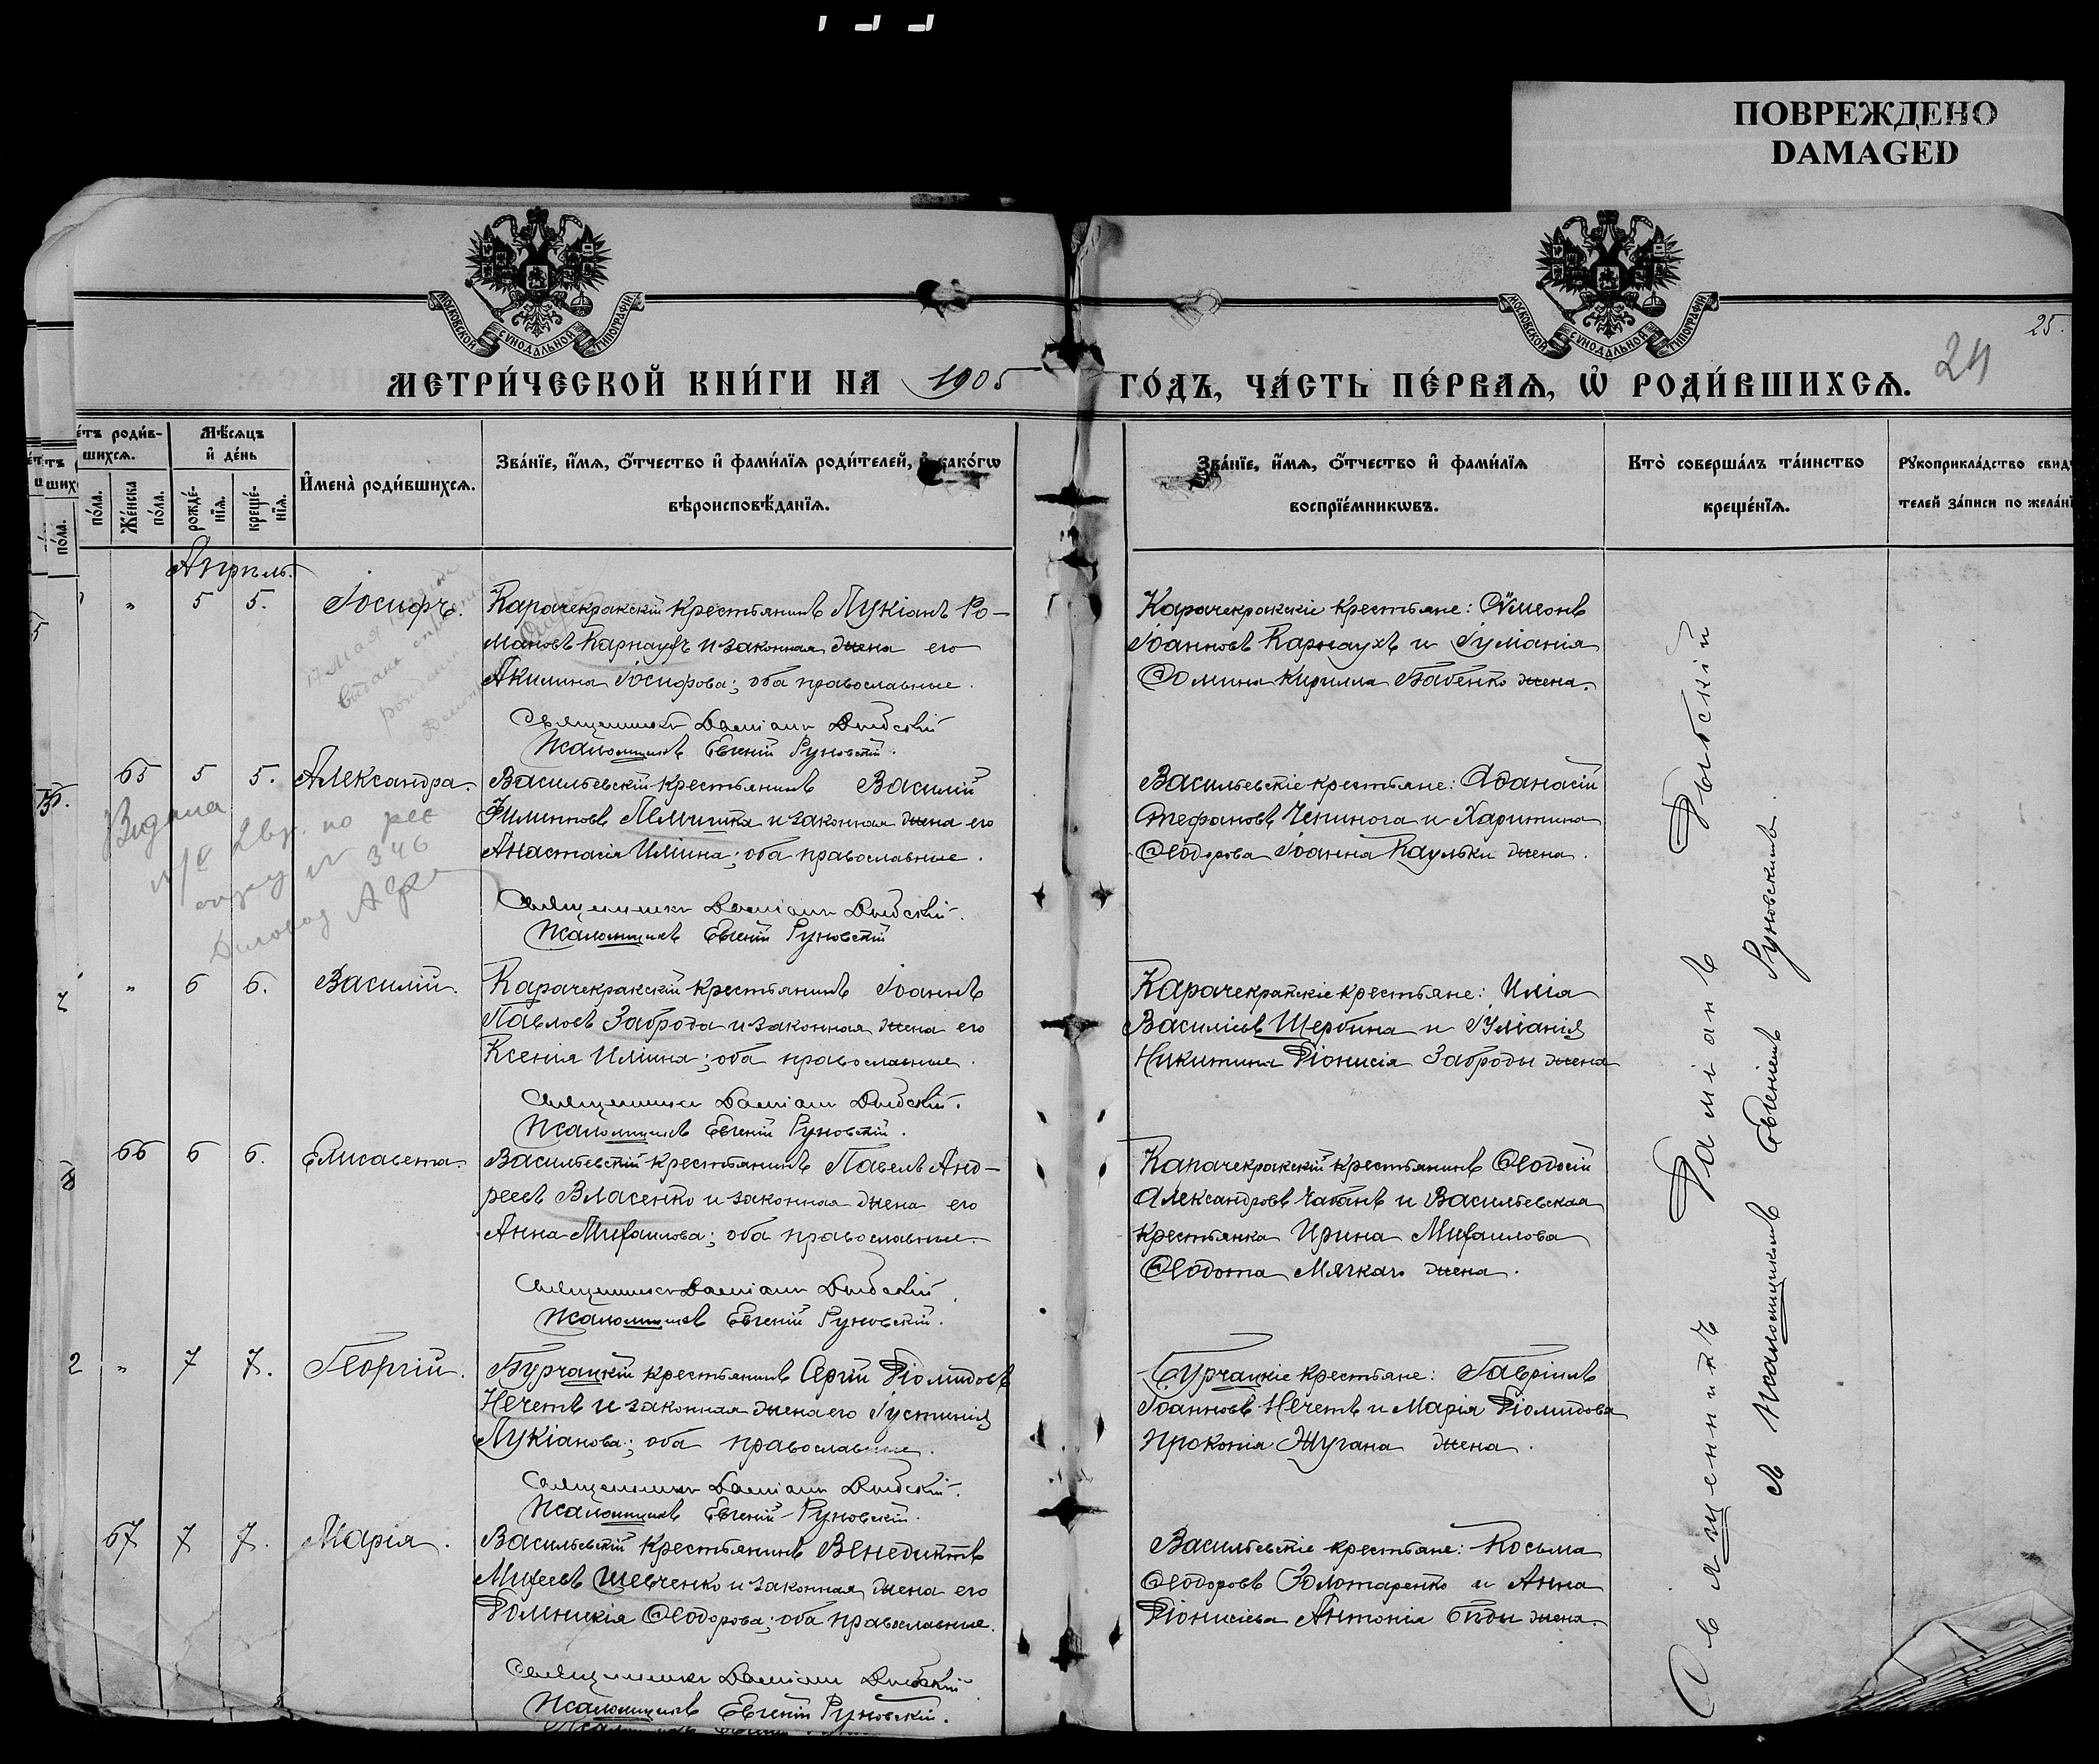 ПОВРЕЖДЕНО
DAMAGED
МОСКОВСКОЙ СѴНОДАЛЬНОЙ ТИПОГРАФІИ
МОСКОВСКОЙ СѴНОДАЛЬНОЙ ТИПОГРАФІИ
25.
24
МЕТРИ́ЧЕСКОЙ КНИ́ГИ НА 1905 ГО́ДЪ, ЧА́СТЬ ПЕ́РВАѦ, Ѡ҆ РОДИ́ВШИХСѦ.
е́тъ роди́вшихсѧ.
по́ла.
Же́нска по́ла.
Мѣ́сѧцъ и҆ де́нь
рожде́нїѧ.
креще́нїѧ.
И҆мена̀ роди́вшихсѧ.
Зва́нїе, и҆́мѧ, ѻ҆́тчество и҆ фами́лїѧ роди́телей, и҆ како́гѡ
вѣроисповѣ́данїѧ.
Зва́нїе, и҆́мѧ, ѻ҆́тчество и҆ фами́лїѧ
воспрїе́мникѡвъ.
Кто̀ соверша́лъ та́инство
креще́нїѧ.
Рꙋкоприкла́дство свид
телей за́писи по жела́н
Апрѣль.
" 5 5. Іосифъ.
Карачекракскій крестьянинъ Лукіанъ Ро-
мановъ Карнаухъ и законная жена его
Акилина Іосифова; оба православные.
Священникъ Даміанъ Дыбскій
Псаломщикъ Евгеній Руновскій.
Карачекракскіе крестьяне: Сѵмеонъ
Іоанновъ Карнаухъ и Іуліанія
Фомина Кирилла Бабенко жена.
17 Мая
65 5 5. Александра.
Васильевскій крестьянинъ Василій
Филипповъ и законная жена его
Анастасія Иліина; оба православные.
Священникъ Даміанъ Дыбскій.
Псаломщикъ Евгеній Руновскій
Васильевскіе крестьяне: Аѳанасій
Стефановъ Чепинога и Харитина
Ѳеодорова Іоанна Каульки жена.
Видана
по
N 346
" 6 6. Василій.
Карачекракскій крестьянинъ Іоаннъ
Павловъ Заброда и законная жена его
Ксенія Иліина; оба православные.
Священникъ Даміанъ Дыбскій.
Псаломщикъ Евгеній Руновскій.
Карачекракскіе крестьяне: Илія
Василіевъ Щербина и Іуліанія
Никитина Діонисія Заброды жена
66 6 6. Елисавета.
Васильевскій крестьянинъ Павелъ Анд-
реевъ Власенко и законная жена его
Анна Михаилова; оба православные.
Священникъ Даміанъ Дыбскій.
Псаломщикъ Евгеній Руновскій.
Карачекракскій крестьянинъ Ѳеодосій
Александровъ Чабанъ и Васильевская
крестьянка Ирина Михаилова
Ѳеодота Мягкаго жена.
2 " 7 7. Георгій.
Бурчацкій крестьянинъ Сергій Діомидовъ
Нечетъ и законная жена его Іустинія
Лукіанова; оба православные.
Священникъ Даміанъ Дыбскій.
Псаломщикъ Евгеній Руновскій.
Бурчацкіе крестьяне: Гавріилъ
Іоанновъ Нечетъ и Марія Діомидова
Прокопія Жугана жена.
67 7 7. Марія.
Васильевскій крестьянинъ Венедиктъ
Михеевъ Шевченко и законная жена его
Домникія Ѳеодорова; оба православные.
Священникъ Даміанъ Дыбскій
Псаломщикъ Евгеній Руновскій.
Васильевскіе крестьяне: Косьма
Ѳеодоровъ Золотаренко и Анна
Діонисіева Антонія Бѣды жена.
Священникъ Даміанъ Дыбскій
съ Псаломщикомъ Евгеніемъ Руновскимъ.